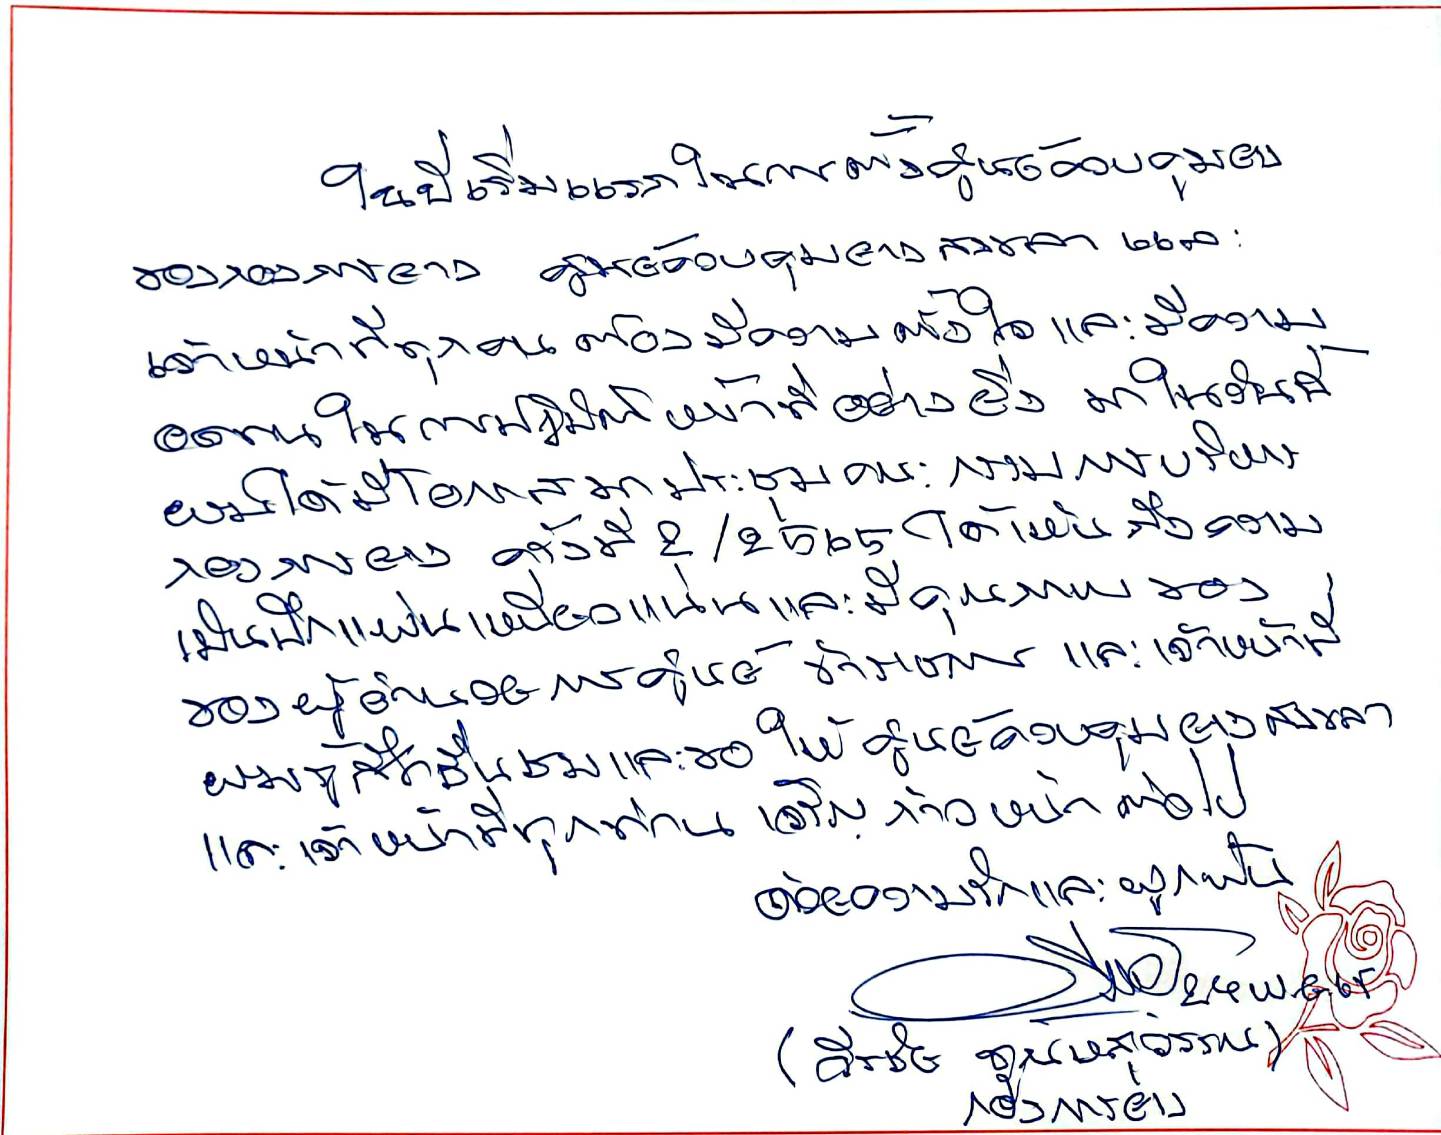 ในปีเริ่มแรก ในการตั้งศูนย์ควบคุมยาง
ของกองการยาง ศูนย์ควบคุมยางสงขลา และ
เจ้าหน้าที่ทุกคน ต้องมีความตั้งใจ และมีความ
อดทนในการปฏิบัติหน้าที่อย่างยิ่ง มาในวันนี้
ผมได้มีโอกาสมาประชุมคณะกรรมการบริหาร
กองการยาง ครั้งที่ 2/2565 ได้เห็นถึงความ
เป็นปึกแผ่นเหนียวแน่นและมีคุณภาพ ของ
ของผู้อำนวยการศูนย์ ข้าราชการ และเจ้าหน้าที่
ผมรู้สึกชื่นชมและขอให้ศูนย์ควบคุมยางสงขลา
และเจ้าหน้าที่ทุกท่าน เจริญก้าวหน้าต่อไป
ด้วยความรักและผูกพัน
2 ส.ค. 65
(ธีรชัย
กองการยาง